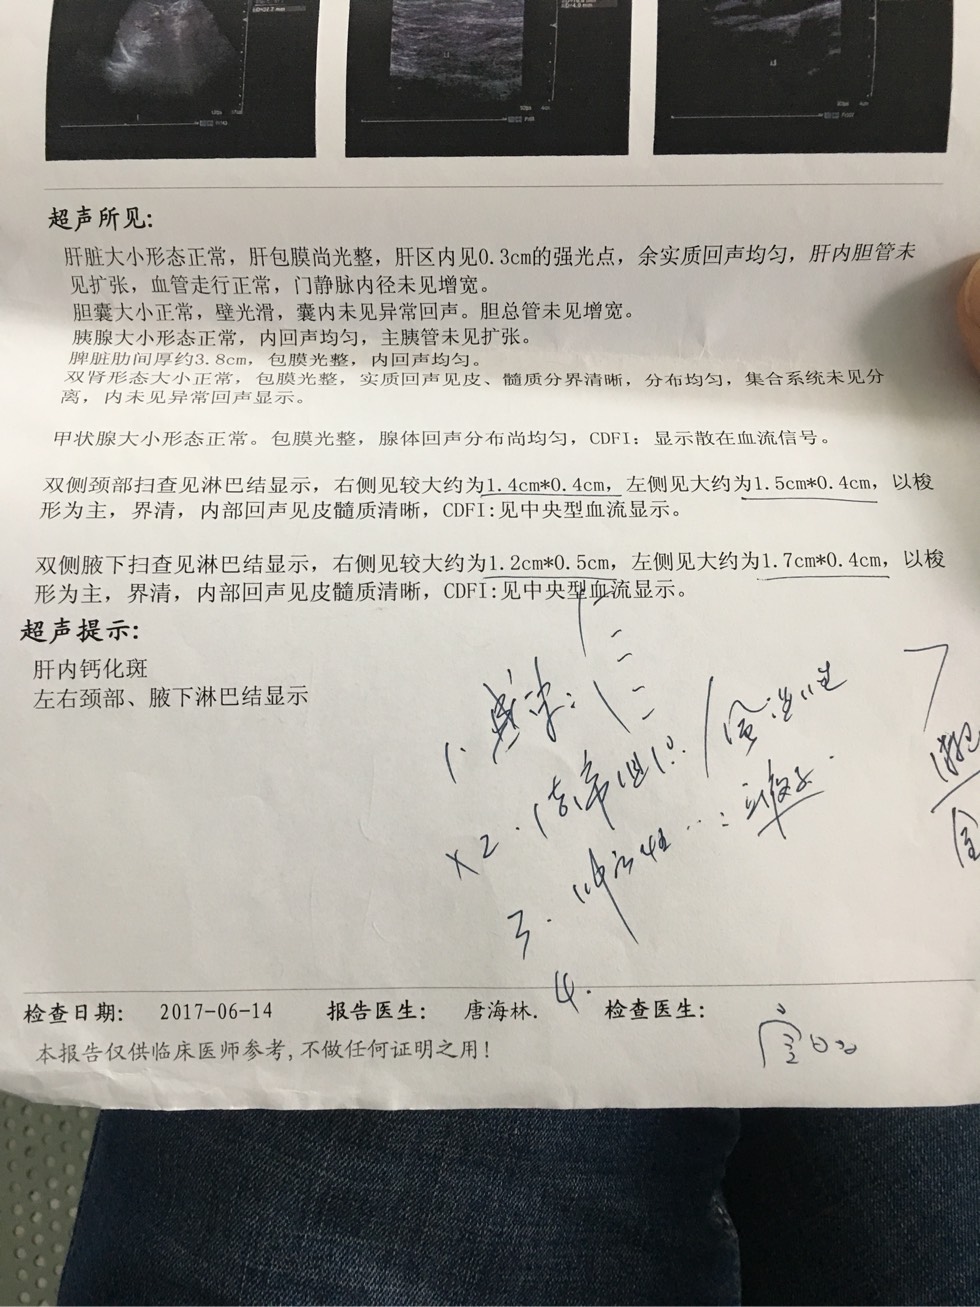 超声所见:
肝脏大小形态正常，肝包膜尚光整，肝区内见0.3cm的强光点，余实质回声均匀，肝内胆管未
见扩张，血管走行正常，门静脉内径未见增宽。
胆囊大小正常，壁光滑，囊内未见异常回声。胆总管未见增宽。
胰腺大小形态正常，内回声均匀，主胰管未见扩张。
脾脏肋间厚约3.8cm，包膜光整，内回声均匀。
双肾形态大小正常，包膜光整，实质回声见皮、髓质分界清晰，分布均匀，集合系统未见分
离，内未见异常回声显示。
甲状腺大小形态正常。包膜光整，腺体回声分布尚均匀，CDFI：显示散在血流信号。
双侧颈部扫查见淋巴结显示，右侧见较大约为1.4cm*0.4cm，左侧见大约为1.5cm*0.4cm，以梭
形为主，界清，内部回声见皮髓质清晰，CDFI:见中央型血流显示。
双侧腋下扫查见淋巴结显示，右侧见较大约为1.2cm*0.5cm，左侧见大约为1.7cm*0.4cm，以梭
形为主，界清，内部回声见皮髓质清晰，CDFI:见中央型血流显示。
超声提示:
肝内钙化斑
左右颈部、腋下淋巴结显示
1.
2.
3.
4.
检查日期: 2017-06-14 报告医生: 唐海林. 检查医生:
本报告仅供临床医师参考,不做任何证明之用!